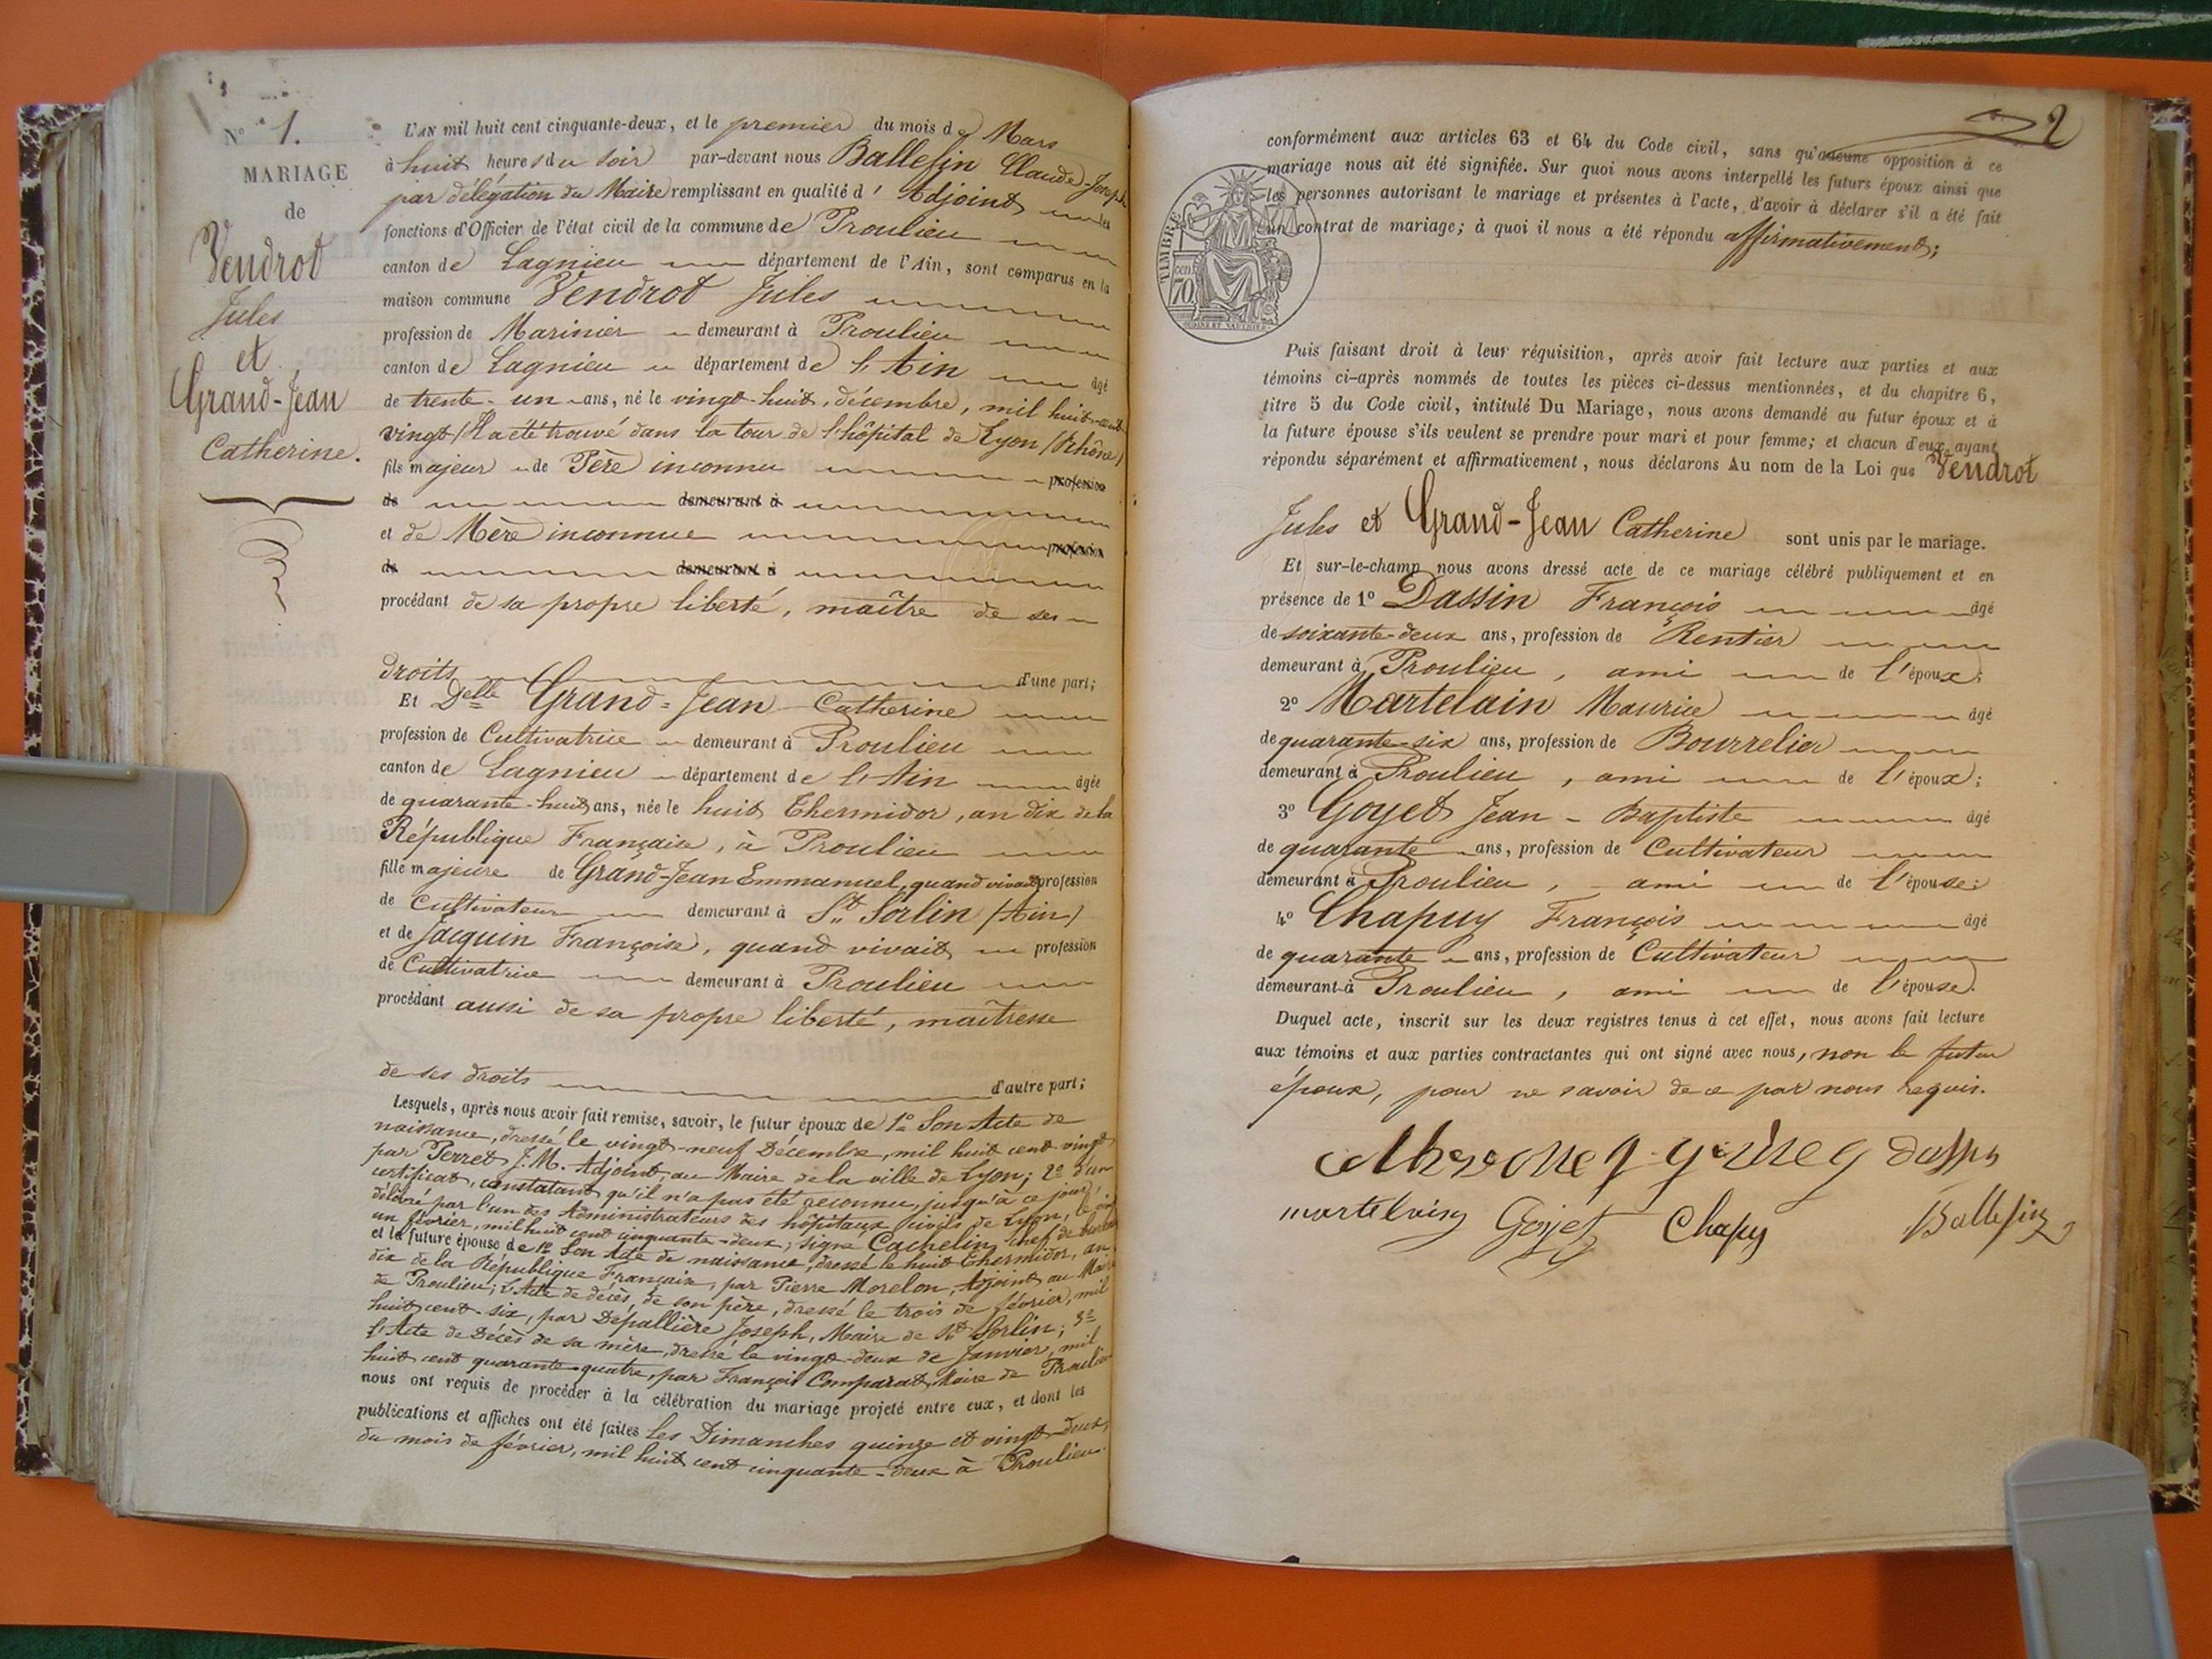 N° 1.
MARIAGE
de
Vendrot
Jules
et
Grand-Jean
Catherine.
L'AN mil huit cent cinquante-deux, et le premier du mois de Mars
à huit heures du soir par-devant nous Ballefin Claude-Joseph
par délégation du Maire remplissant en qualité d'Adjoint les
fonctions d'Officier de l'état civil de la commune de Proulieu
canton de Lagnieu département de l'Ain, sont comparus en la
maison commune Vendrot Jules
profession de Marinier demeurant à Proulieu
canton de Lagnieu département de l'Ain âgé
de trente-un ans, né le vingt-huit, décembre, mil huit-cent
vingt / Il a été trouvé dans la tour de l'hôpital de Lyon / Rhône /
fils majeur de Père inconnu profession
de demeurant à
et de Mère inconnue profession
de demeurant à
procédant de sa propre liberté, maître de ses
droits d'une part;
Et Delle Grand-Jean Catherine
profession de Cultivatrice demeurant à Proulieu
canton de Lagnieu département de l'Ain âgée
de quarante-huit ans, née le huit Thermidor, an dix de la
République Française, à Proulieu
fille majeure de Grand-Jean Emmanuel, quand vivait profession
de Cultivateur demeurant à St Sorlin /Ain/
et de Jacquin Françoise, quand vivait profession
de Cultivatrice demeurant à Proulieu
procédant aussi de sa propre liberté, maîtresse
de ses droits d'autre part;
Lesquels, après nous avoir fait remise, savoir, le futur époux de 1° Son Acte de
naissance, dressé le vingt-neuf Décembre, mil huit cent vingt
par Perret J. M. Adjoint au Maire de la ville de Lyon; 2° D'un
certificat, constatant qu'il n'a pas été reconnu, jusqu'à ce jour,
délivré par l'un des Administrateurs des hôpitaux civils de Lyon, le
un février, mil huit cent cinquante-deux; signé Cachelin, chef de bureau
et la future épouse de 1° Son Acte de naissance, dressé le huit Thermidor, an
dix de la République Française, par Pierre Morelon, Adjoint au Maire
de Proulieu; L'Acte de décès, de son père, dressé le trois de février, mil
huit cent-six, par Dépallière Joseph, Maire de St Sorlin; 3°
L'Acte de Décès de sa mère, dressé le vingt-deux de Janvier, mil
huit cent quarante-quatre, par François Comparat, Maire de Proulieu
nous ont requis de procéder à la célébration du mariage projeté entre eux, et dont les
publications et affiches ont été faites les Dimanches quinze et vingt-deux,
du mois de février, mil huit cent cinquante-deux à Proulieu.
2
conformément aux articles 63 et 64 du Code civil, sans qu'aucune opposition à ce
mariage nous ait été signifiée. Sur quoi nous avons interpellé les futurs époux ainsi que
les personnes autorisant le mariage et présentes à l'acte, d'avoir à déclarer s'il a été fait
un contrat de mariage; à quoi il nous a été répondu affirmativement;
TIMBRE
cen
70
Puis faisant droit à leur réquisition, après avoir fait lecture aux parties et aux
témoins ci-après nommés de toutes les pièces ci-dessus mentionnées, et du chapitre 6,
titre 5 du Code civil, intitulé Du Mariage, nous avons demandé au futur époux et à
la future épouse s'ils veulent se prendre pour mari et pour femme; et chacun d'eux ayant
répondu séparément et affirmativement, nous déclarons Au nom de la Loi que Vendrot
Jules et Grand-Jean Catherine sont unis par le mariage.
Et sur-le-champ nous avons dressé acte de ce mariage célébré publiquement et en
présence de 1° Dassin François âgé
de soixante-deux ans, profession de Rentier
demeurant à Proulieu, ami de l'époux;
2° Martelain Maurice âgé
de quarante-six ans, profession de Bourrelier
demeurant à Proulieu, ami de l'époux;
3° Goyet Jean-Baptiste âgé
de quarante ans, profession de Cultivateur
demeurant à Proulieu, ami de l'épouse;
4° Chapuy François âgé
de quarante ans, profession de Cultivateur
demeurant à Proulieu, ami de l'épouse.
Duquel acte, inscrit sur les deux registres tenus à cet effet, nous avons fait lecture
aux témoins et aux parties contractantes qui ont signé avec nous, non le futur
époux, pour ne savoir de ce par nous requis.
dassin
martelain Goyet Chapuy Ballefin